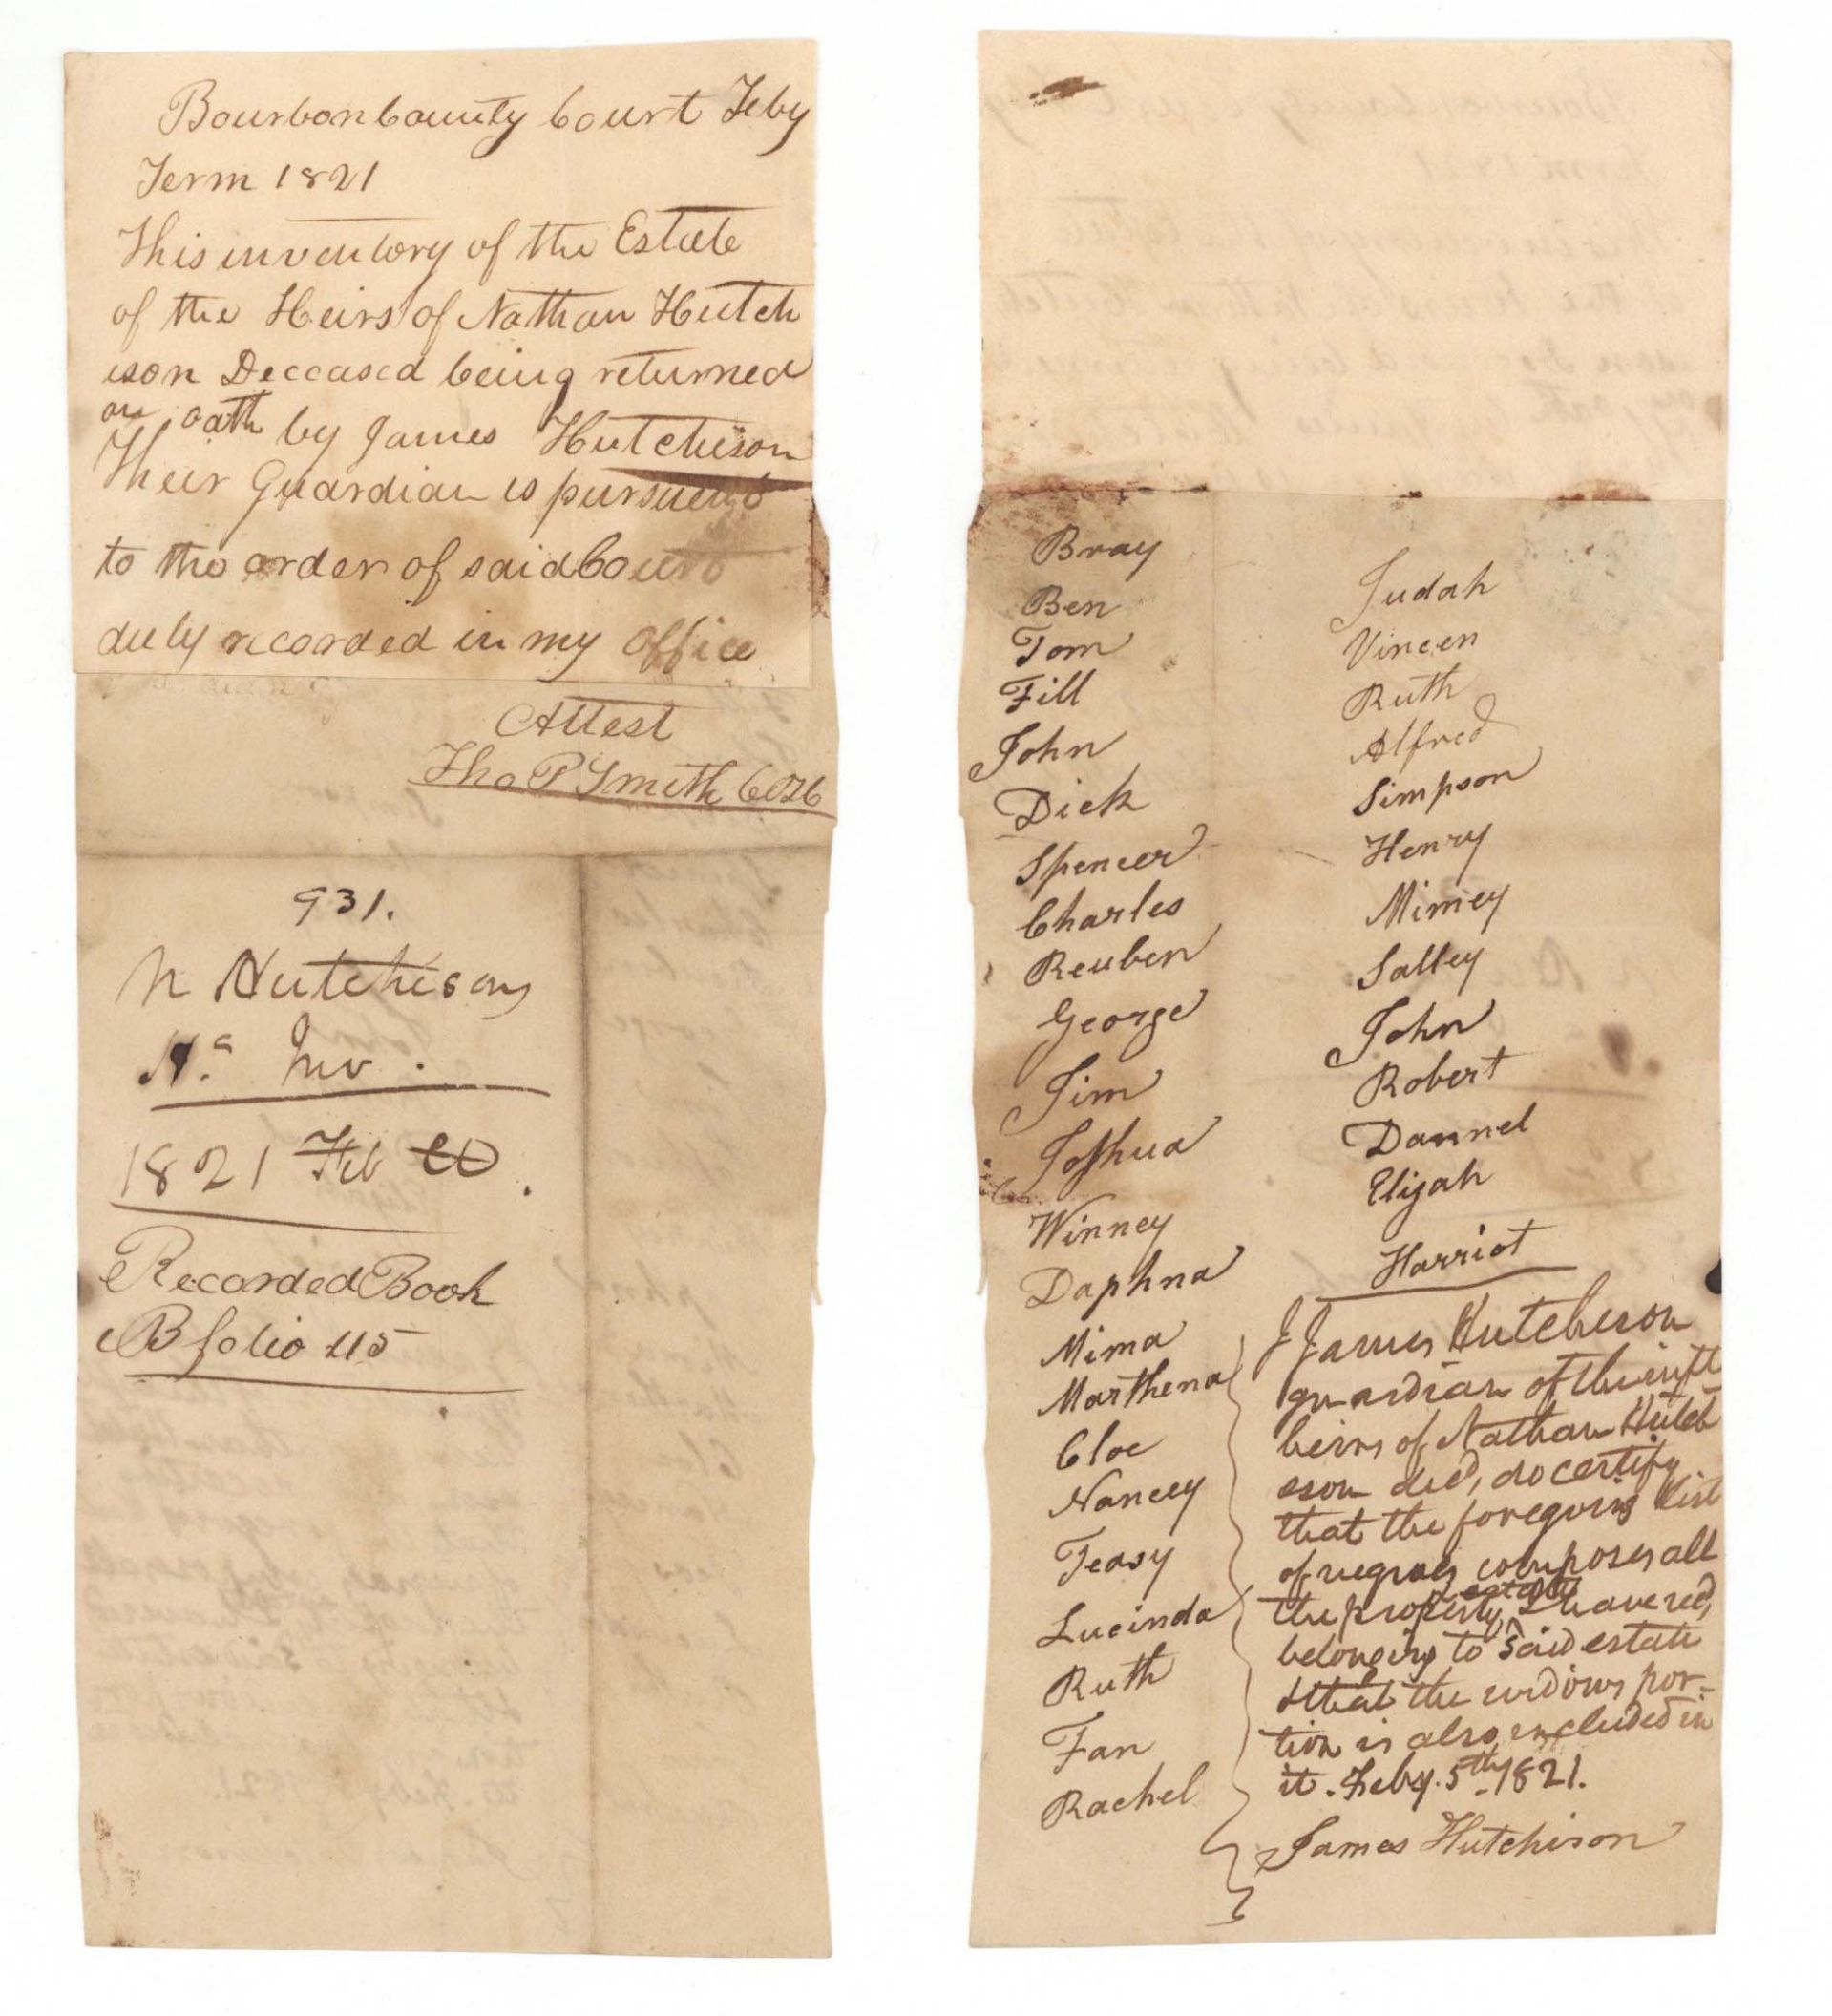 Bourbon County Court Feby
Term 1821
This inventory of the Estate
of the Heirs of Nathan Hutch
ison Deceased being returned
on oath by James Hutchison
Their Guardian is pursuent
to the order of said Court
duly recorded in my office
Attest
Tho P Smith
931.
N Hutchisons
Inv.
1821 Feb
Recorded Book
B folio 115
Bray
Ben
Tom
Fill
John
Dick
Spencer
Charles
Reuben
George
Jim
Joshua
Winney
Daphna
Mima
Marthena
Cloe
Nancey
Teasy
Lucinda
Ruth
Fan
Rachel
Judah
Vincen
Ruth
Alfred
Simpson
Henry
Mimey
Salley
John
Robert
Dannel
Elijah
Harriot
I James Hutcheson
guardian of the inft
heirs of Nathan Hutch
eson decd, do certify
that the foregoing list
of negroes composes all
the property I have recd,
belonging to said estate
& that the widows por-
tion is also included in
it. Feby. 5th 1821.
James Hutchison